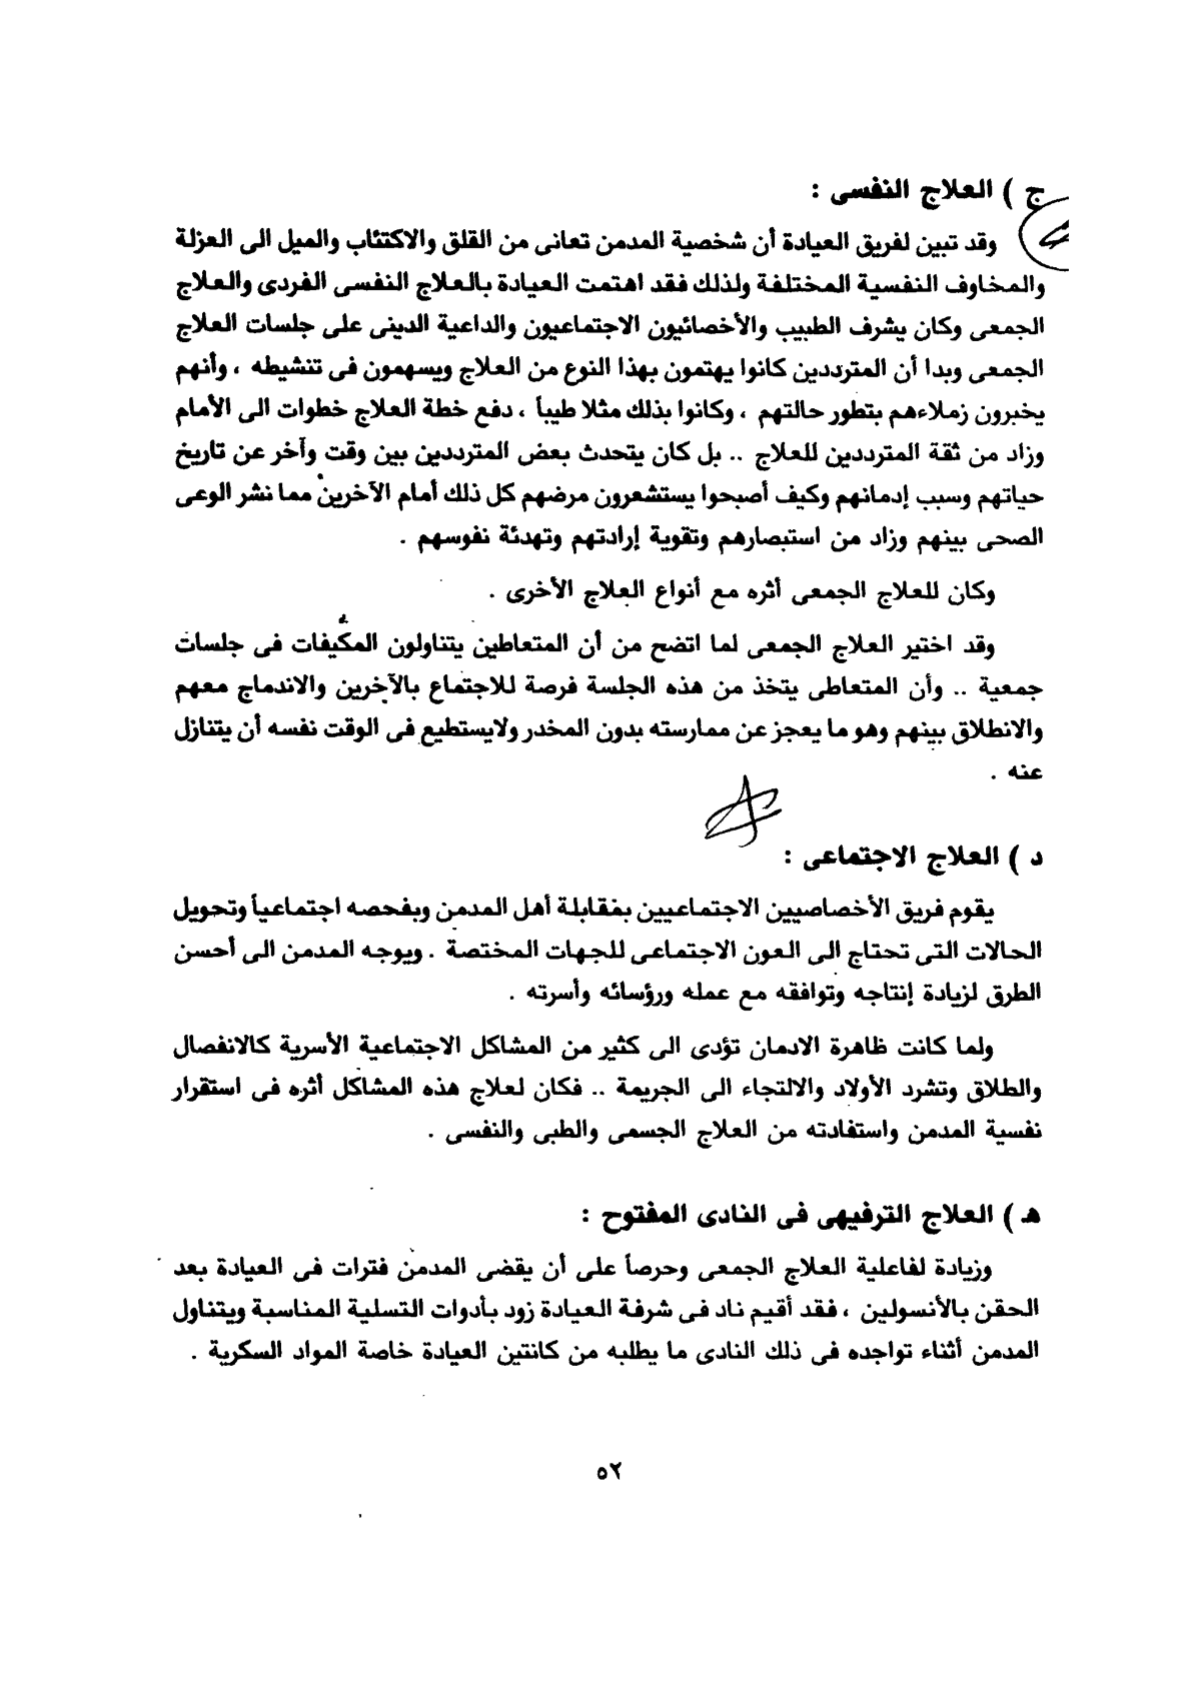 ج ) العلاج النفسى :
وقد تبين لفريق العيادة أن شخصية المدمن تعانى من القلق والاكتئاب والميل الى العزلة
والمخاوف النفسية المختلفة ولذلك فقد اهتمت العيادة بالعلاج النفسى الفردى والعلاج
الجمعى وكان يشرف الطبيب والأخصائيون الاجتماعيون والداعية الدينى على جلسات العلاج
الجمعى وبدا أن المترددين كانوا يهتمون بهذا النوع من العلاج ويسهمون فى تنشيطه ، وأنهم
يخبرون زملاءهم بتطور حالتهم ، وكانوا بذلك مثلا طيباً ، دفع خطة العلاج خطوات الى الأمام
وزاد من ثقة المترددين للعلاج .. بل كان يتحدث بعض المترددين بين وقت وآخر عن تاريخ
حياتهم وسبب إدمانهم وكيف أصبحوا يستشعرون مرضهم كل ذلك أمام الآخرين مما نشر الوعى
الصحى بينهم وزاد من استبصارهم وتقوية إرادتهم وتهدئة نفوسهم .
وكان للعلاج الجمعى أثره مع أنواع العلاج الأخرى .
وقد اختير العلاج الجمعى لما اتضح من أن المتعاطين يتناولون المكيفات فى جلسات
جمعية .. وأن المتعاطى يتخذ من هذه الجلسة فرصة للاجتماع بالآخرين والاندماج معهم
والانطلاق بينهم وهو ما يعجز عن ممارسته بدون المخدر ولايستطيع فى الوقت نفسه أن يتنازل
عنه .
د ) العلاج الاجتماعى :
يقوم فريق الأخصاصيين الاجتماعيين بمقابلة أهل المدمن وبفحصه اجتماعياً وتحويل
الحالات التى تحتاج الى العون الاجتماعى للجهات المختصة . ويوجه المدمن الى أحسن
الطرق لزيادة إنتاجه وتوافقه مع عمله ورؤسائه وأسرته .
ولما كانت ظاهرة الادمان تؤدى الى كثير من المشاكل الاجتماعية الأسرية كالانفصال
والطلاق وتشرد الأولاد والالتجاء الى الجريمة .. فكان لعلاج هذه المشاكل أثره فى استقرار
نفسية المدمن واستفادته من العلاج الجسمى والطبى والنفسى .
هـ ) العلاج الترفيهى فى النادى المفتوح :
وزيادة لفاعلية العلاج الجمعى وحرصاً على أن يقضى المدمن فترات فى العيادة بعد
الحقن بالأنسولين ، فقد أقيم ناد فى شرفة العيادة زود بأدوات التسلية المناسبة ويتناول
المدمن أثناء تواجده فى ذلك النادى ما يطلبه من كانتين العيادة خاصة المواد السكرية .
٥٢